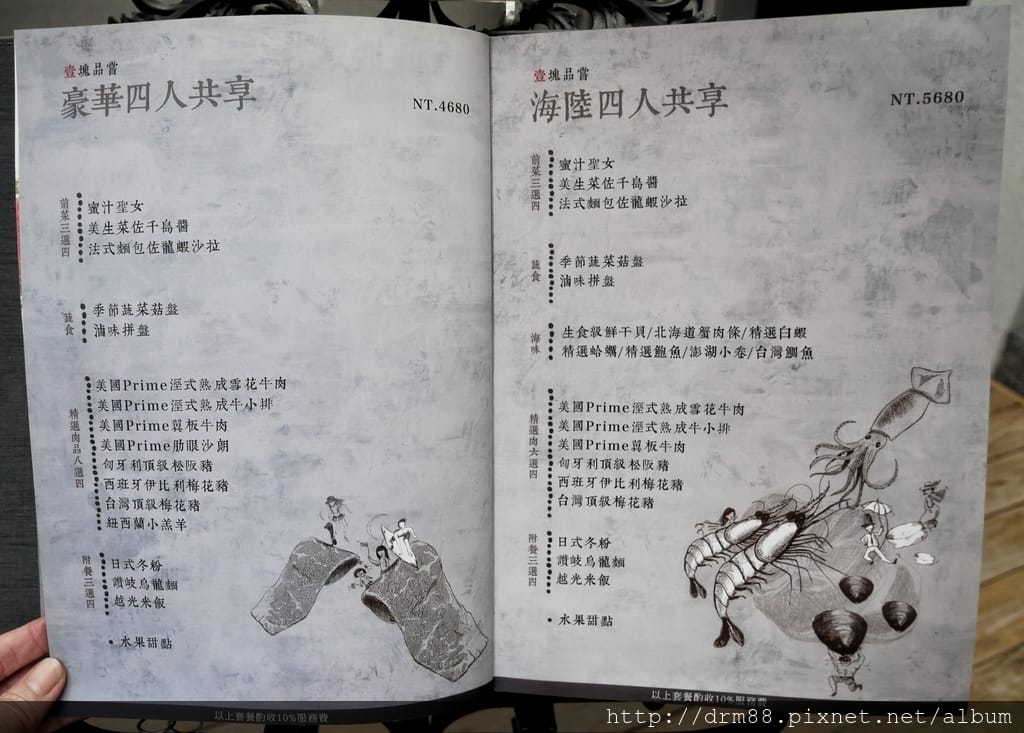 壹塊品嘗
豪華四人共享
NT.4680
前菜三選四
蜜汁聖女
美生菜佐千島醬
法式麵包佐龍蝦沙拉
蔬食
季節蔬菜菇盤
滷味拼盤
精選肉品八選四
美國Prime溼式熟成雪花牛肉
美國Prime溼式熟成牛小排
美國Prime翼板牛肉
美國Prime肋眼沙朗
匈牙利頂級松阪豬
西班牙伊比利梅花豬
台灣頂級梅花豬
紐西蘭小羔羊
附餐三選四
日式冬粉
讚岐烏龍麵
越光米飯
• 水果甜點
以上套餐酌收10%服務費
壹塊品嘗
海陸四人共享
NT.5680
前菜三選四
蜜汁聖女
美生菜佐千島醬
法式麵包佐龍蝦沙拉
蔬食
季節蔬菜菇盤
滷味拼盤
海味
生食級鮮干貝/北海道蟹肉條/精選白蝦
精選蛤蠣/精選鮑魚/澎湖小卷/台灣鯛魚
精選肉六選四
美國Prime溼式熟成雪花牛肉
美國Prime溼式熟成牛小排
美國Prime翼板牛肉
匈牙利頂級松阪豬
西班牙伊比利梅花豬
台灣頂級梅花豬
附餐三選四
日式冬粉
讚岐烏龍麵
越光米飯
• 水果甜點
以上套餐酌收10%服務費
http://drm88.pixnet.net/album